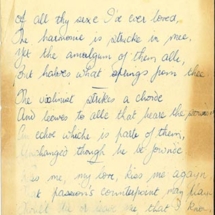 of all thy sexe I've ever loved,
The harmonie is strucke in mee,
Yet the amalgum of them alle,
But halves what springs from thee
The violinist strikes a chorde
And leaves to alle that heare the
echoe whiche is parte of them,
Unchanged though he be
Kiss me, my love, kiss me again
passion's counterpoint may
me that I